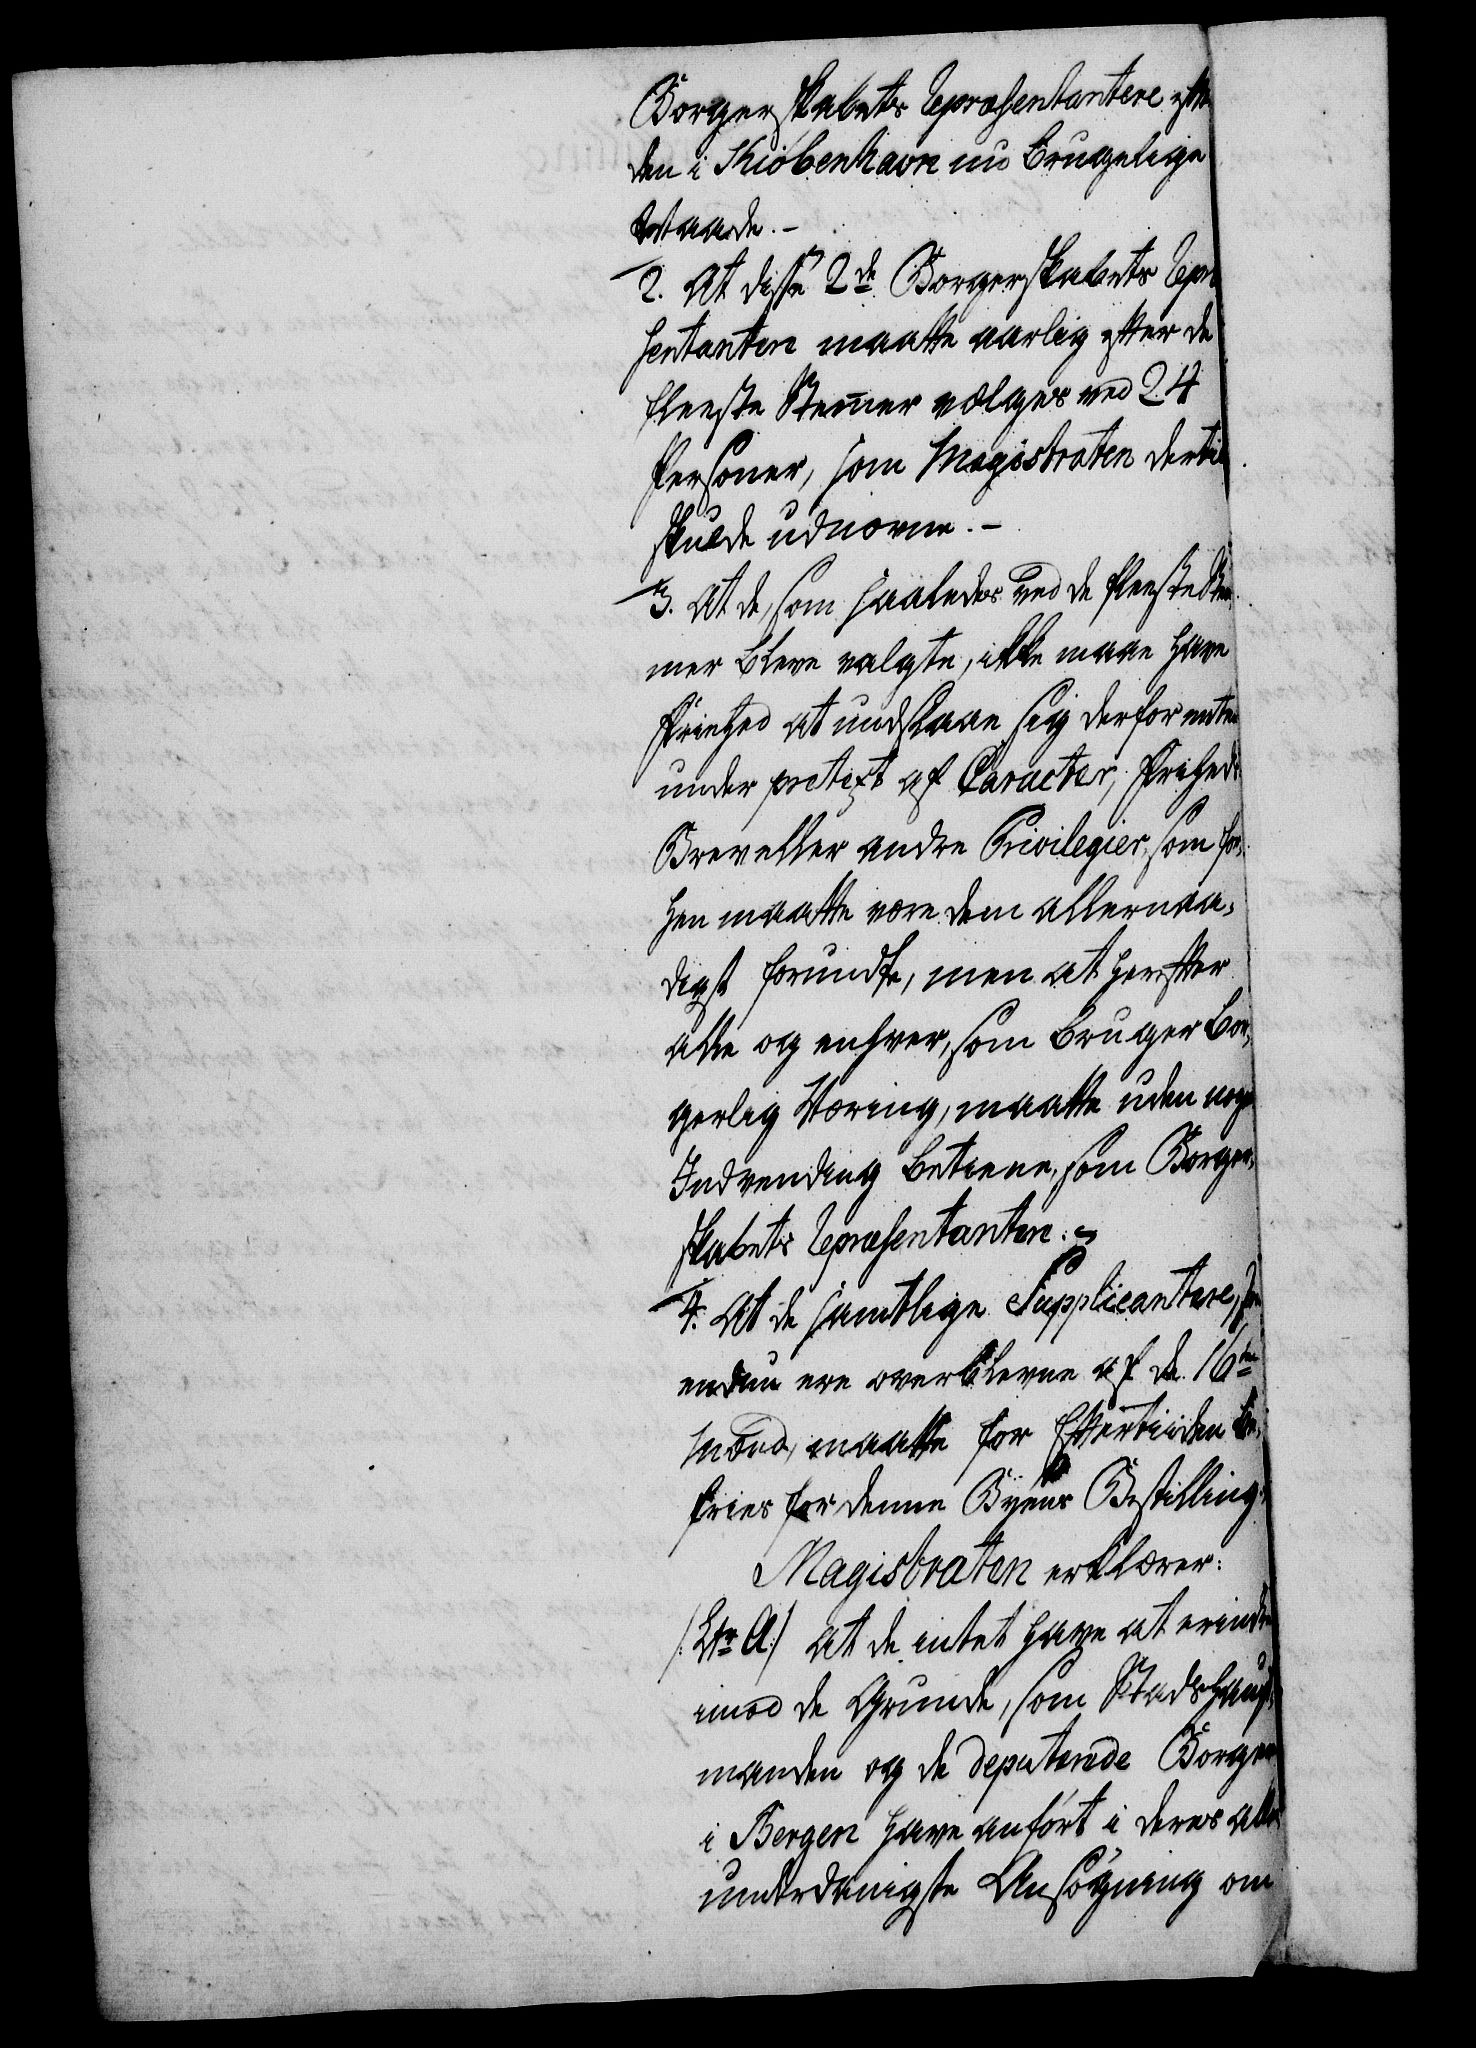 Borgerskabets Repræsentantere efter
den i Kiöbenhavn nu brugelige
Maade. -
2. At disse 2de Borgerskabets Repræ
sentantere maatte aarlig efter de
fleeste Stemer vælges ved 24
Personer, som Magistraten dertil
skulde udnævne. -
3. At de, som saaledes ved de fleeste Stem¬
mer bleve valgte, ikke maae have
Friehed at undslaae sig derfor enten
under prætext af Caracter, Friheds
Brev eller andre Privilegier, som for¬
hen maatte være dem allernaa¬
digst forundte, men at herefter
alle og enhver, som bruger bor¬
gerlig Næring, maatte uden nogen
Indvending betiene, som Borger¬
skabets Repræsentantere. -
4. At de samtlige Supplicantere, som
endnu ere overblevne af de 16ten
Mænd, maatte for Eftertiiden be¬
fries for denne Byens Bestilling.
Magistraten erklærer:
/: Ltr A :/ at de intet have at erindre
imod de Grunde, som Stadshaupt¬
manden og de deputerede Borgere
i Bergen have anført i deres aller
underdanigste Ansögning om